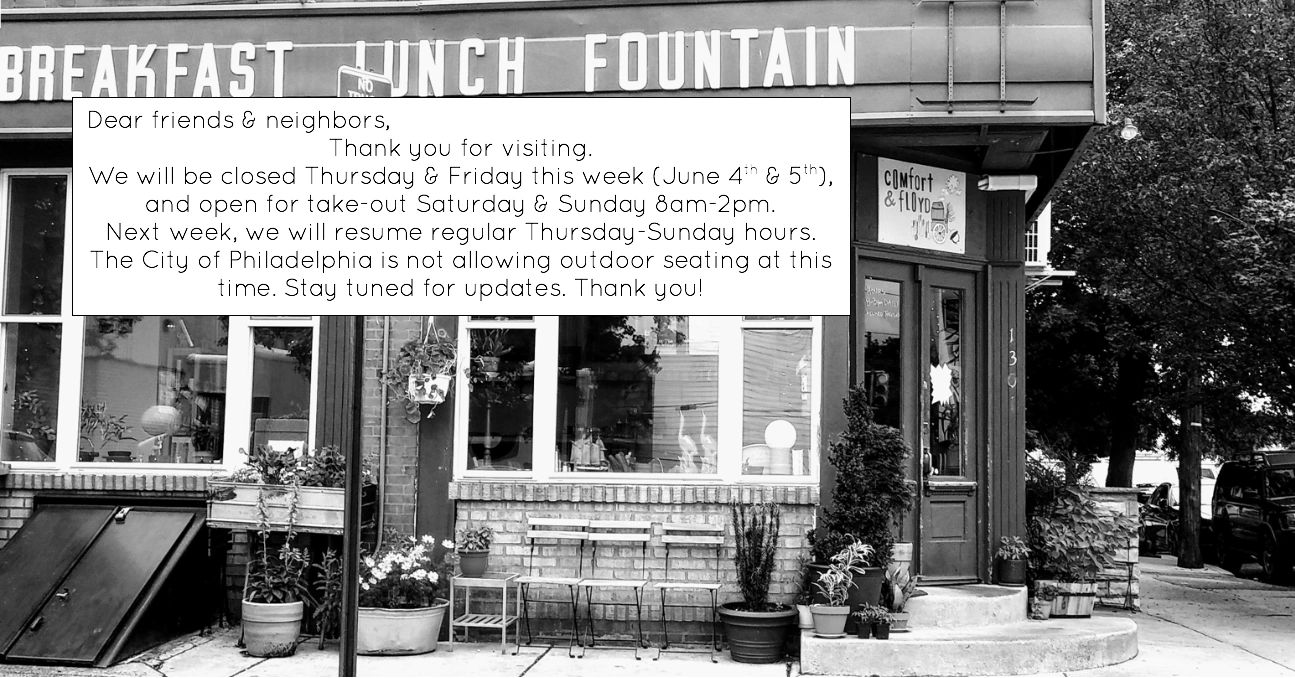 BREAKFAST LUNCH FOUNTAIN
NO
Dear friends & neighbors,
Thank you for visiting.
We will be closed Thursday & Friday this week (June 4th & 5th),
and open for take-out Saturday & Sunday 8am-2pm.
Next week, we will resume regular Thursday-Sunday hours.
The City of Philadelphia is not allowing outdoor seating at this
time. Stay tuned for updates. Thank you!
comfort
& floyd
130